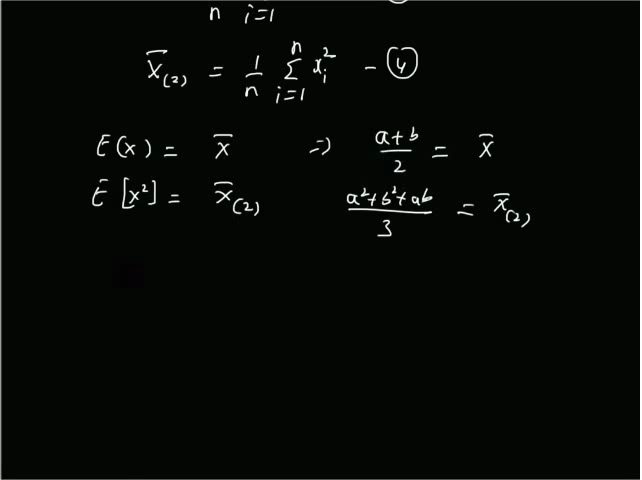 n i=1
X̄(2) = 1/n Σⁿᵢ₌₁ xᵢ² - ④
E(x) = x̄ => a+b/2 = x̄
E[x²] = x̄(2) a²+b²+ab/3 = x̄(2)